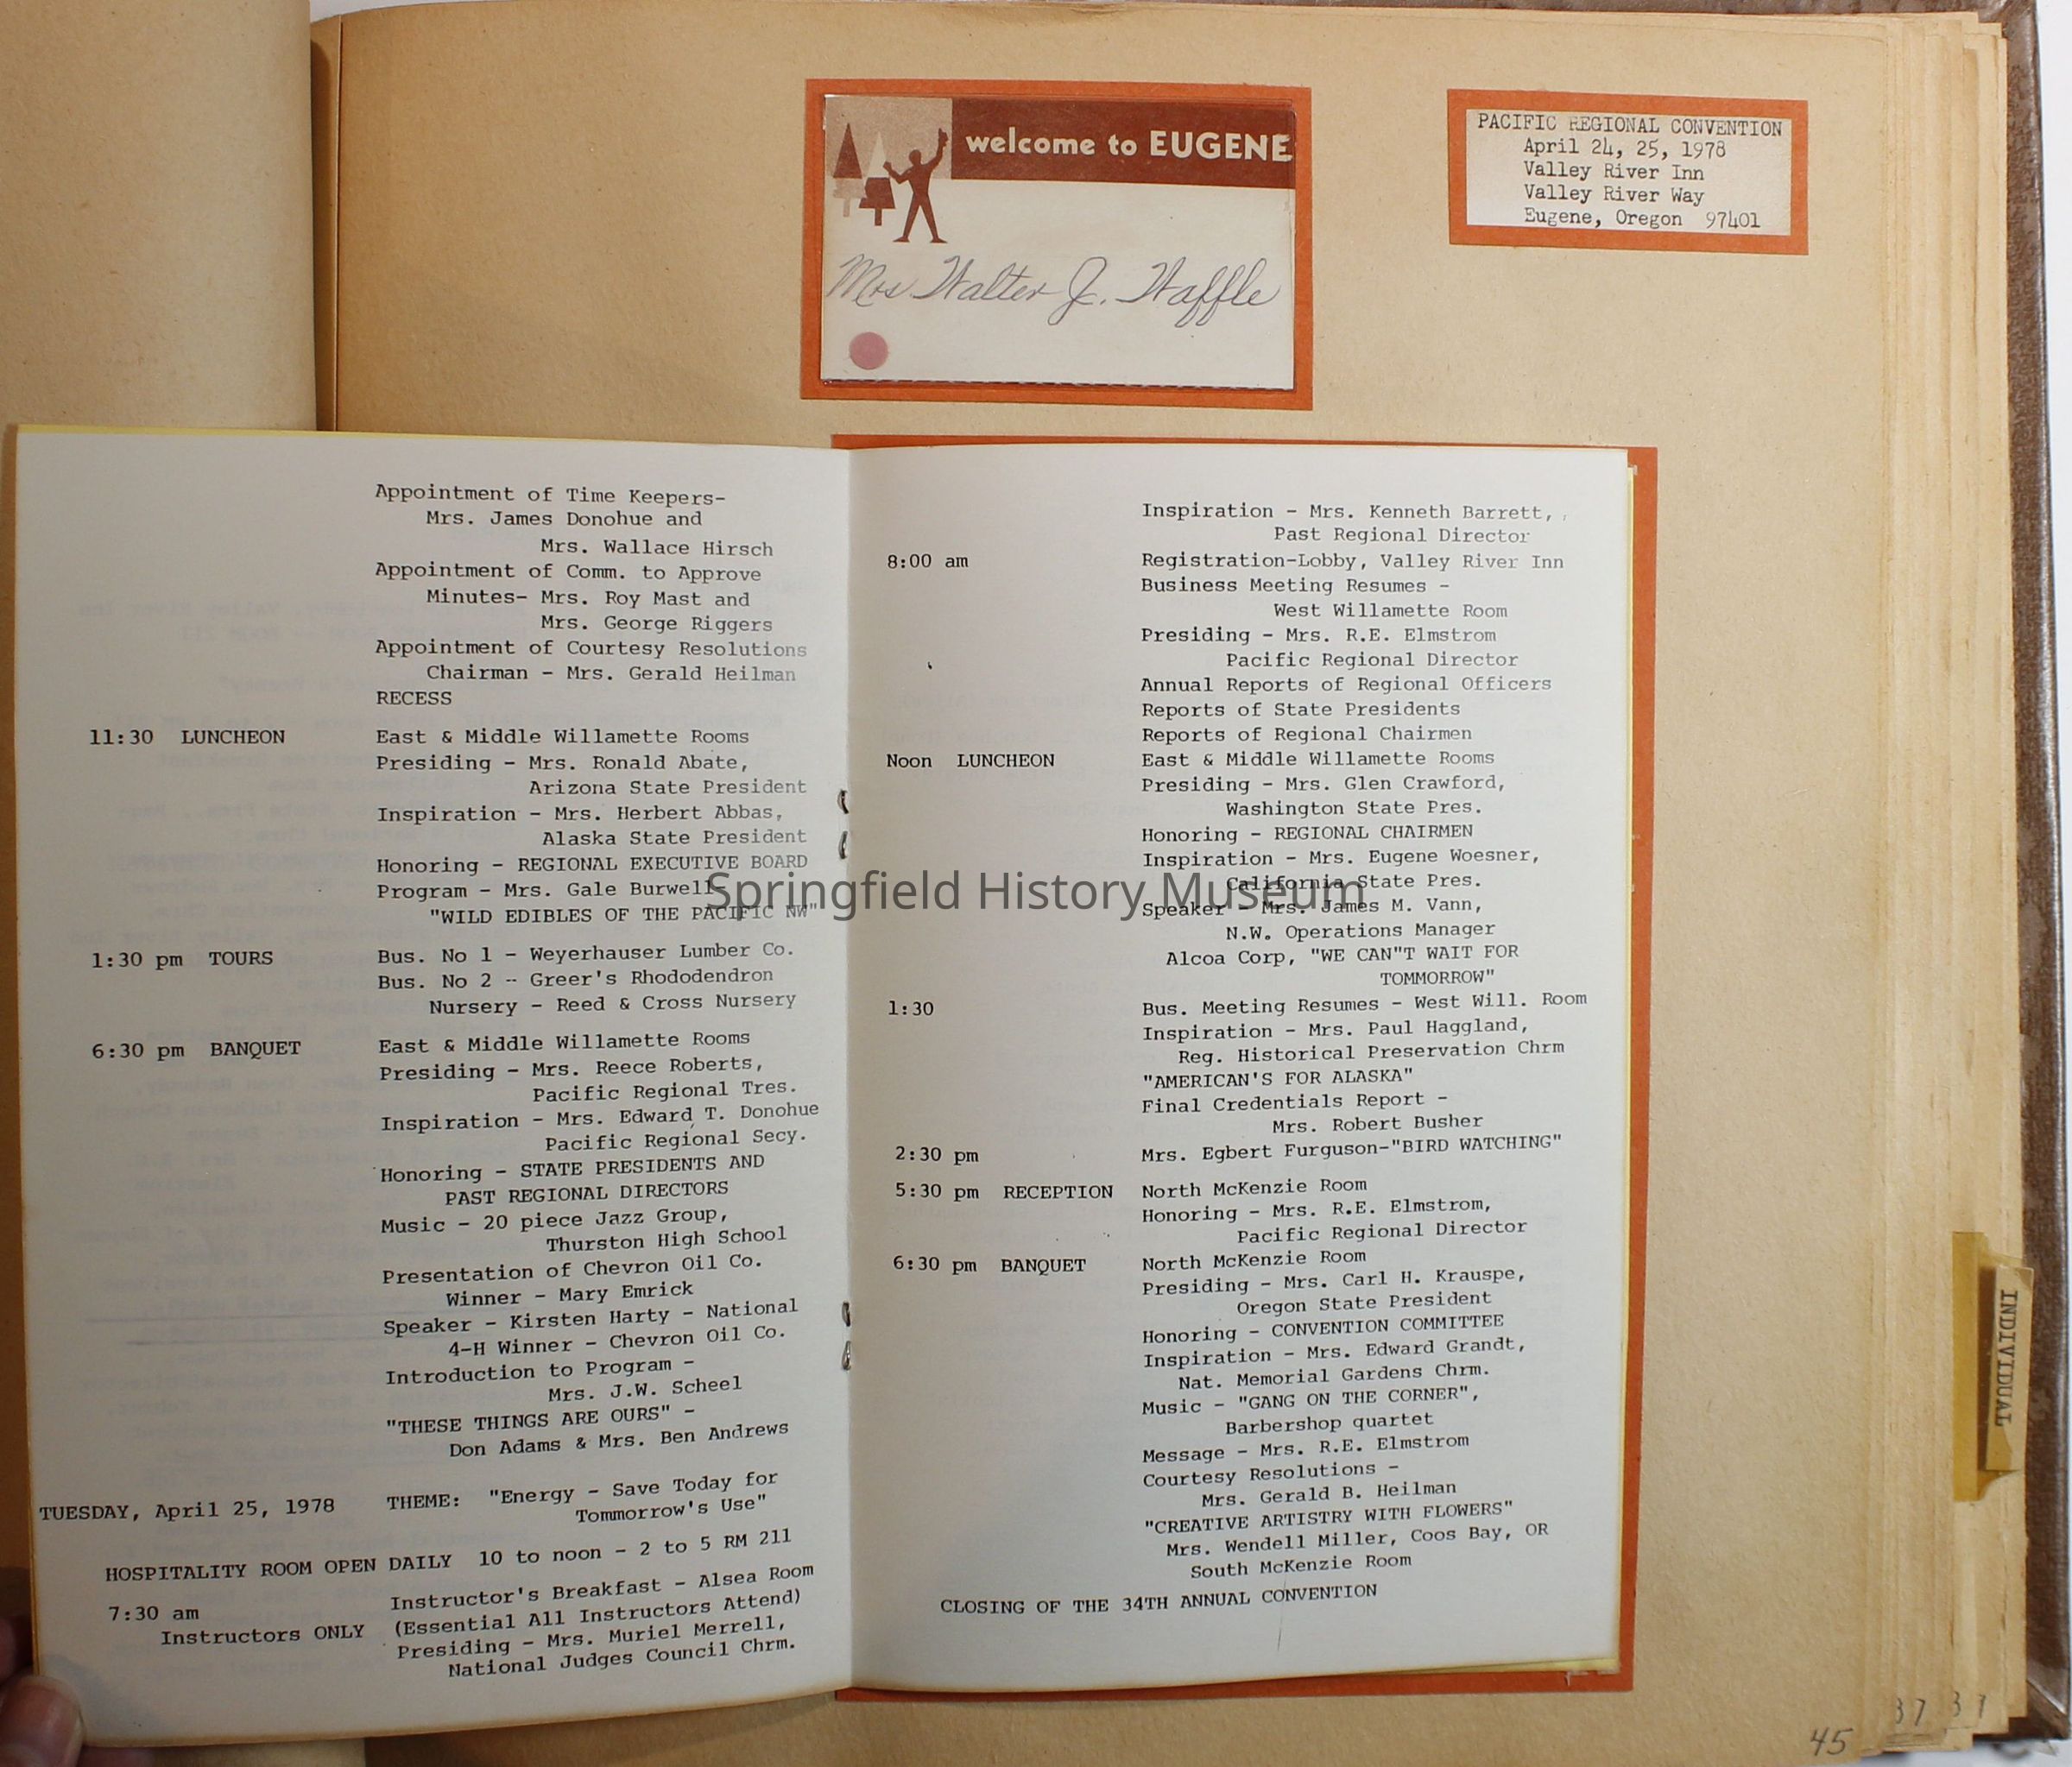 welcome to EUGENE
Mrs Walter J. Waffle
PACIFIC REGIONAL CONVENTION
April 24, 25, 1978
Valley River Inn
Valley River Way
Eugene, Oregon 97401
Appointment of Time Keepers-
Mrs. James Donohue and
Mrs. Wallace Hirsch
Appointment of Comm. to Approve
Minutes- Mrs. Roy Mast and
Mrs. George Riggers
Appointment of Courtesy Resolutions
Chairman - Mrs. Gerald Heilman
RECESS
11:30 LUNCHEON East & Middle Willamette Rooms
Presiding - Mrs. Ronald Abate,
Arizona State President
Inspiration - Mrs. Herbert Abbas,
Alaska State President
Honoring - REGIONAL EXECUTIVE BOARD
Program - Mrs. Gale Burwell-
"WILD EDIBLES OF THE PACIFIC NW"
1:30 pm TOURS Bus. No 1 - Weyerhauser Lumber Co.
Bus. No 2 -- Greer's Rhododendron
Nursery - Reed & Cross Nursery
6:30 pm BANQUET East & Middle Willamette Rooms
Presiding - Mrs. Reece Roberts,
Pacific Regional Tres.
Inspiration - Mrs. Edward T. Donohue
Pacific Regional Secy.
Honoring - STATE PRESIDENTS AND
PAST REGIONAL DIRECTORS
Music - 20 piece Jazz Group,
Thurston High School
Presentation of Chevron Oil Co.
Winner - Mary Emrick
Speaker - Kirsten Harty - National
4-H Winner - Chevron Oil Co.
Introduction to Program -
Mrs. J.W. Scheel
"THESE THINGS ARE OURS" -
Don Adams & Mrs. Ben Andrews
TUESDAY, April 25, 1978 THEME: "Energy - Save Today for
Tommorrow's Use"
HOSPITALITY ROOM OPEN DAILY 10 to noon - 2 to 5 RM 211
7:30 am Instructor's Breakfast - Alsea Room
Instructors ONLY (Essential All Instructors Attend)
Presiding - Mrs. Muriel Merrell,
National Judges Council Chrm.
Inspiration - Mrs. Kenneth Barrett,
Past Regional Director
8:00 am Registration-Lobby, Valley River Inn
Business Meeting Resumes -
West Willamette Room
Presiding - Mrs. R.E. Elmstrom
Pacific Regional Director
Annual Reports of Regional Officers
Reports of State Presidents
Reports of Regional Chairmen
Noon LUNCHEON East & Middle Willamette Rooms
Presiding - Mrs. Glen Crawford,
Washington State Pres.
Honoring - REGIONAL CHAIRMEN
Inspiration - Mrs. Eugene Woesner,
California State Pres.
Speaker - Mrs. James M. Vann,
N.W. Operations Manager
Alcoa Corp, "WE CAN"T WAIT FOR
TOMMORROW"
1:30 Bus. Meeting Resumes - West Will. Room
Inspiration - Mrs. Paul Haggland,
Reg. Historical Preservation Chrm
"AMERICAN'S FOR ALASKA"
Final Credentials Report -
Mrs. Robert Busher
2:30 pm Mrs. Egbert Furguson-"BIRD WATCHING"
5:30 pm RECEPTION North McKenzie Room
Honoring - Mrs. R.E. Elmstrom,
Pacific Regional Director
6:30 pm BANQUET North McKenzie Room
Presiding - Mrs. Carl H. Krauspe,
Oregon State President
Honoring - CONVENTION COMMITTEE
Inspiration - Mrs. Edward Grandt,
Nat. Memorial Gardens Chrm.
Music - "GANG ON THE CORNER",
Barbershop quartet
Message - Mrs. R.E. Elmstrom
Courtesy Resolutions -
Mrs. Gerald B. Heilman
"CREATIVE ARTISTRY WITH FLOWERS"
Mrs. Wendell Miller, Coos Bay, OR
South McKenzie Room
CLOSING OF THE 34TH ANNUAL CONVENTION
Springfield History Museum
INDIVIDUAL
45
37
37